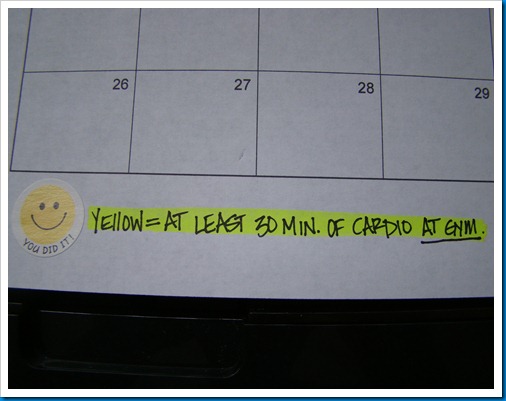 26 27 28 29
YELLOW = AT LEAST 30 MIN. OF CARDIO AT GYM.
YOU DID IT!